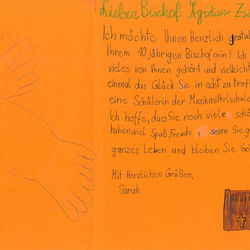 Lieber Bischof Ägidius
Ich möchte Ihnen Herzlich
Ihrem 10 jährigen Bischof sein! Ich
vieles von Ihnen gehört und
einmal das Glück Sie in echt zu
eine Schülerin der
Ich hoffe, dass Sie noch viele
haben, viel Spaß, Freude, seien Sie
ganzes Leben und bleiben Sie
Mit Herzlichen Grüßen,
Sarah